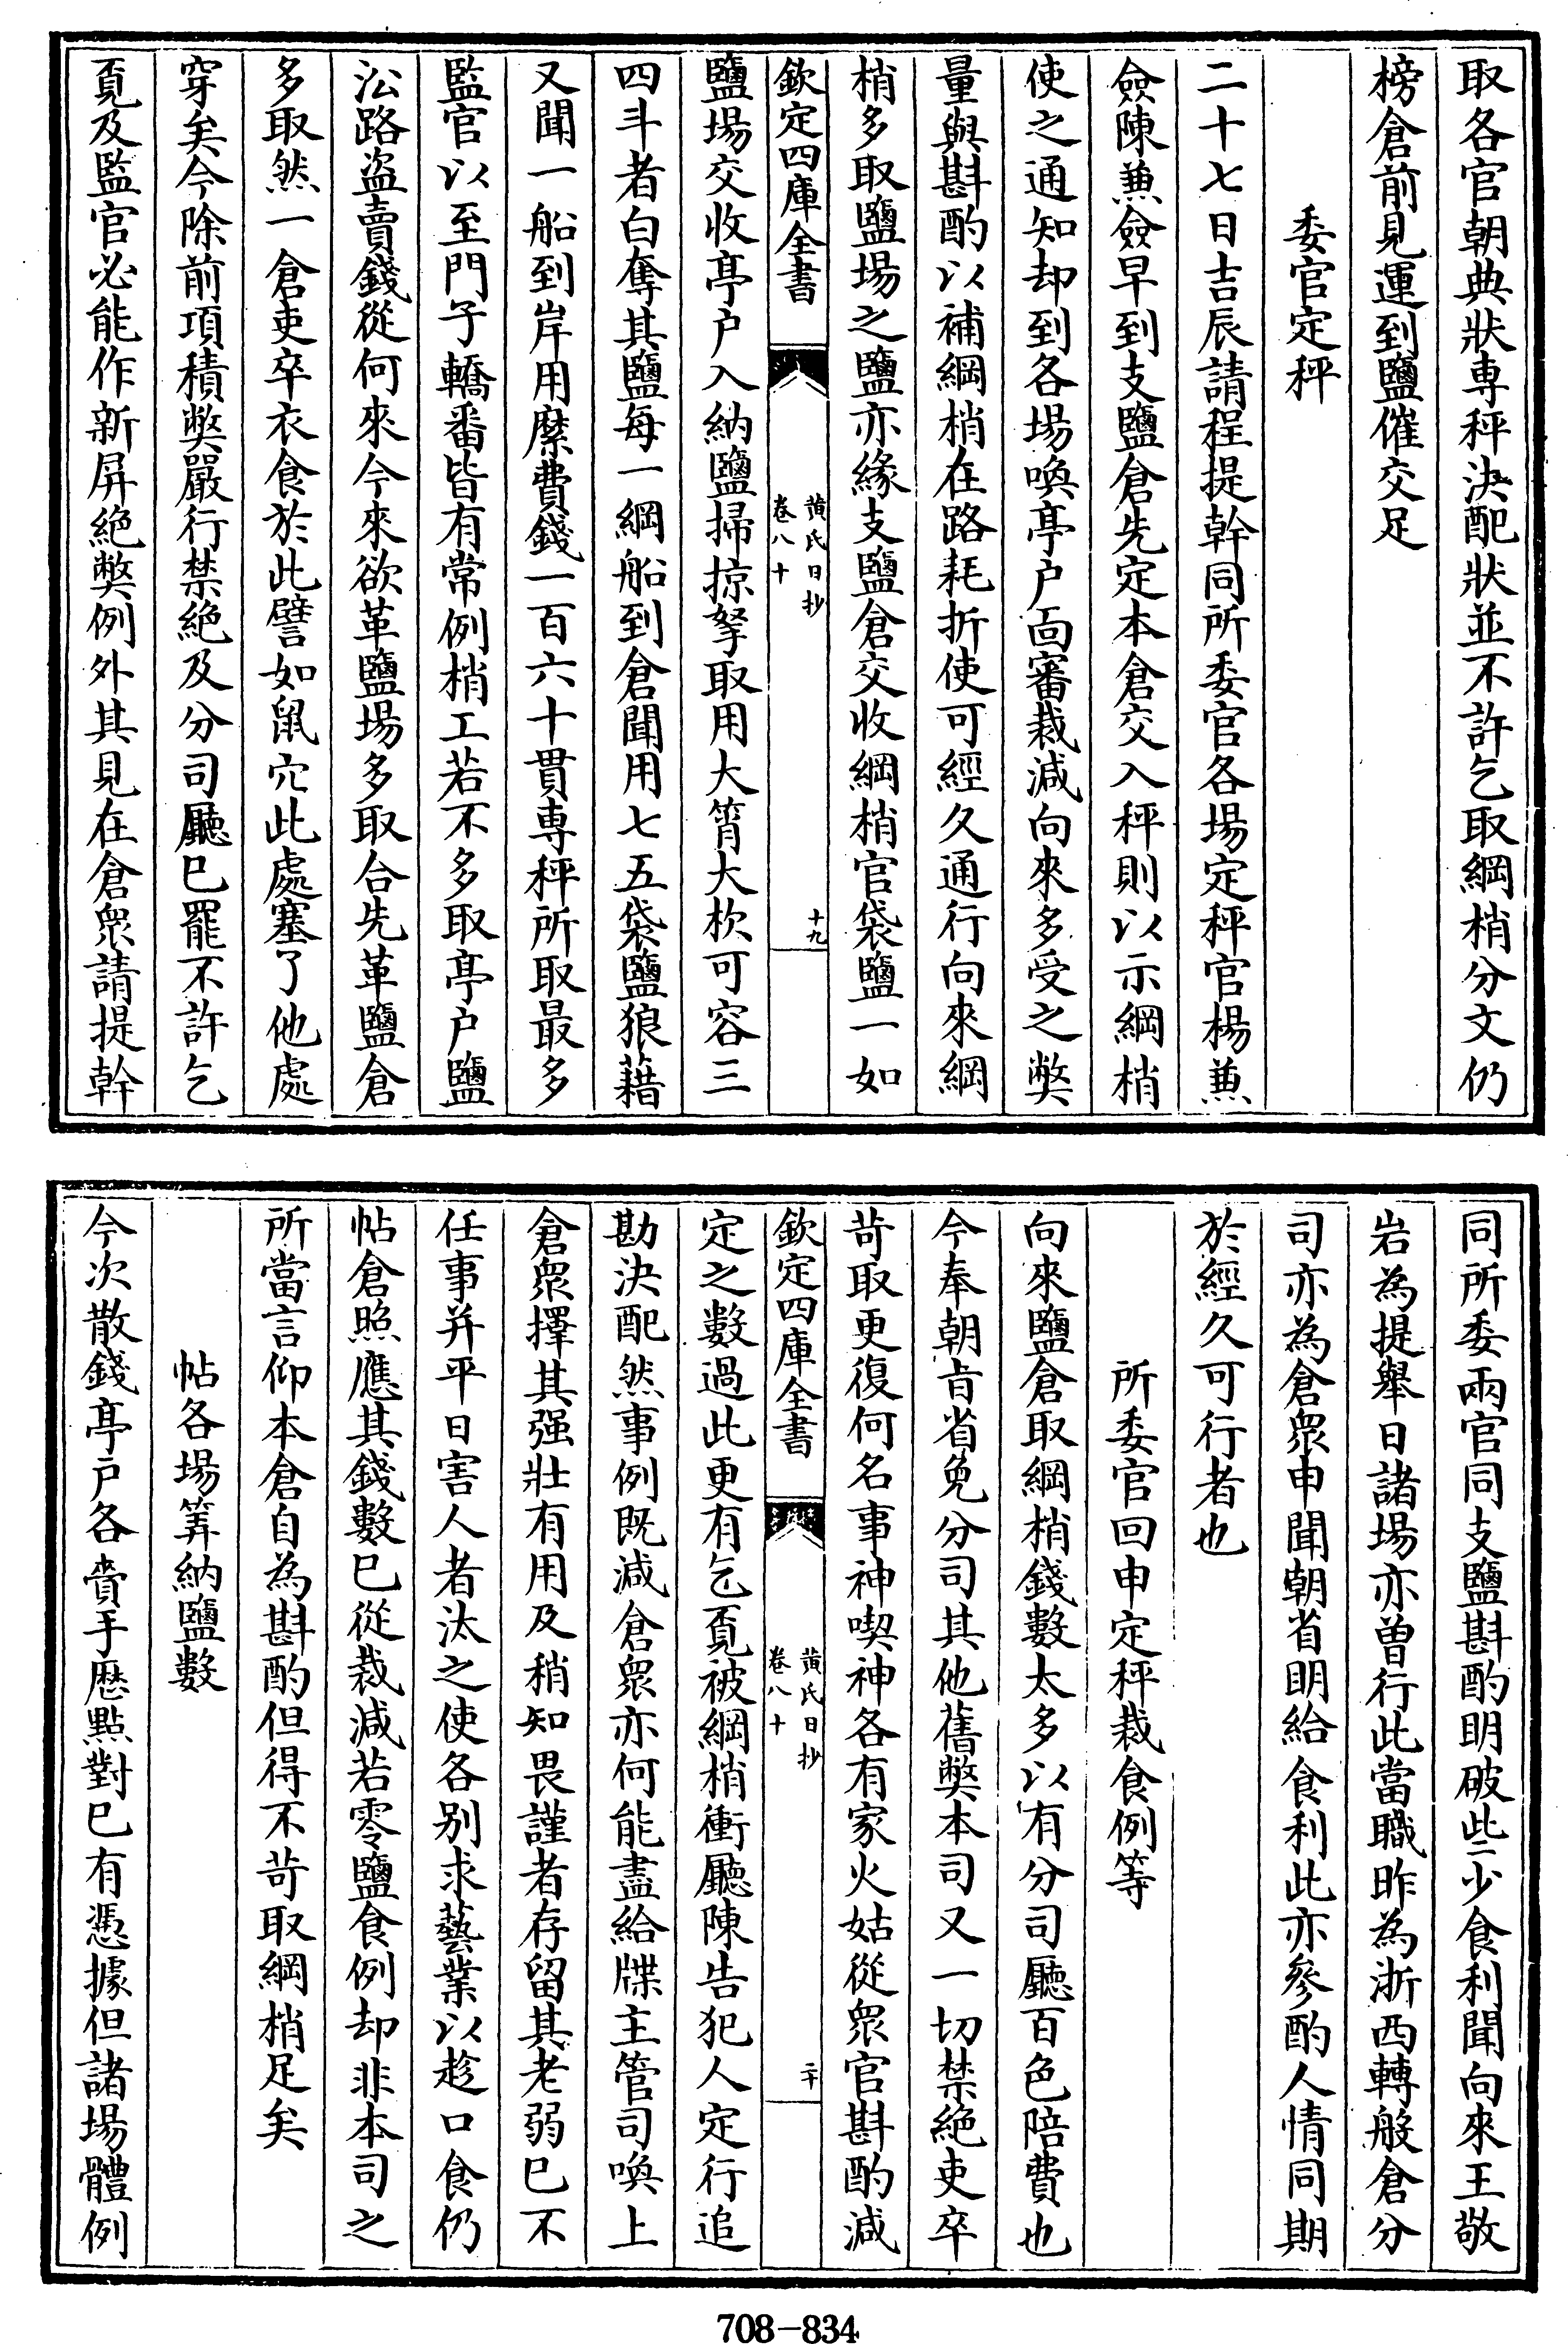 取各官朝典狀専秤決配狀並不許乞取綱梢分文仍
榜倉前見運到鹽催交足
委官定秤
二十七日吉辰請程提幹同所委官各場定秤官楊兼
僉陳兼僉早到支鹽倉先定本倉交入秤則以示綱梢
使之通知却到各場喚亭户面審裁減向來多受之弊
量與斟酌以補綱梢在路耗折使可經久通行向來綱
梢多取鹽場之鹽亦緣支鹽倉交收綱梢官袋鹽一如
欽定四庫全書
黄氏日抄
卷八十
十九
鹽場交收亭户入納鹽掃掠拏取用大筲大杴可容三
四斗者白奪其鹽每一綱船到倉聞用七五袋鹽狼藉
又聞一船到岸用縻費錢一百六十貫専秤所取最多
監官以至門子轎番皆有常例梢工若不多取亭户鹽
㳂路盗賣錢從何來今來欲革鹽場多取合先革鹽倉
多取然一倉吏卒衣食於此譬如鼠穴此處塞了他處
穿矣今除前項積弊嚴行禁絶及分司廳巳罷不許乞
覓及監官必能作新屏絶弊例外其見在倉衆請提幹
同所委兩官同支鹽斟酌明破些少食利聞向來王敬
岩為提舉日諸場亦曾行此當職昨為浙西轉般倉分
司亦為倉衆申聞朝省明給食利此亦參酌人情同期
於經久可行者也
所委官回申定秤裁食例等
向來鹽倉取綱梢錢數太多以有分司廳百色陪費也
今奉朝㫖省免分司其他舊弊本司又一切禁絶吏卒
苛取更復何名事神喫神各有家火姑從衆官斟酌減
欽定四庫全書
黄氏日抄
卷八十
二十
定之數過此更有乞覓被綱梢衝廳陳告犯人定行追
勘決配然事例既減倉衆亦何能盡給牒主管司喚上
倉衆擇其强壯有用及稍知畏謹者存留其老弱巳不
任事并平日害人者汰之使各别求藝業以趁口食仍
帖倉照應其錢數巳從裁減若零鹽食例却非本司之
所當言仰本倉自為斟酌但得不苛取綱梢足矣
帖各場筭納鹽數
今次散錢亭户各賫手厯點對巳有憑據但諸場體例
708-834